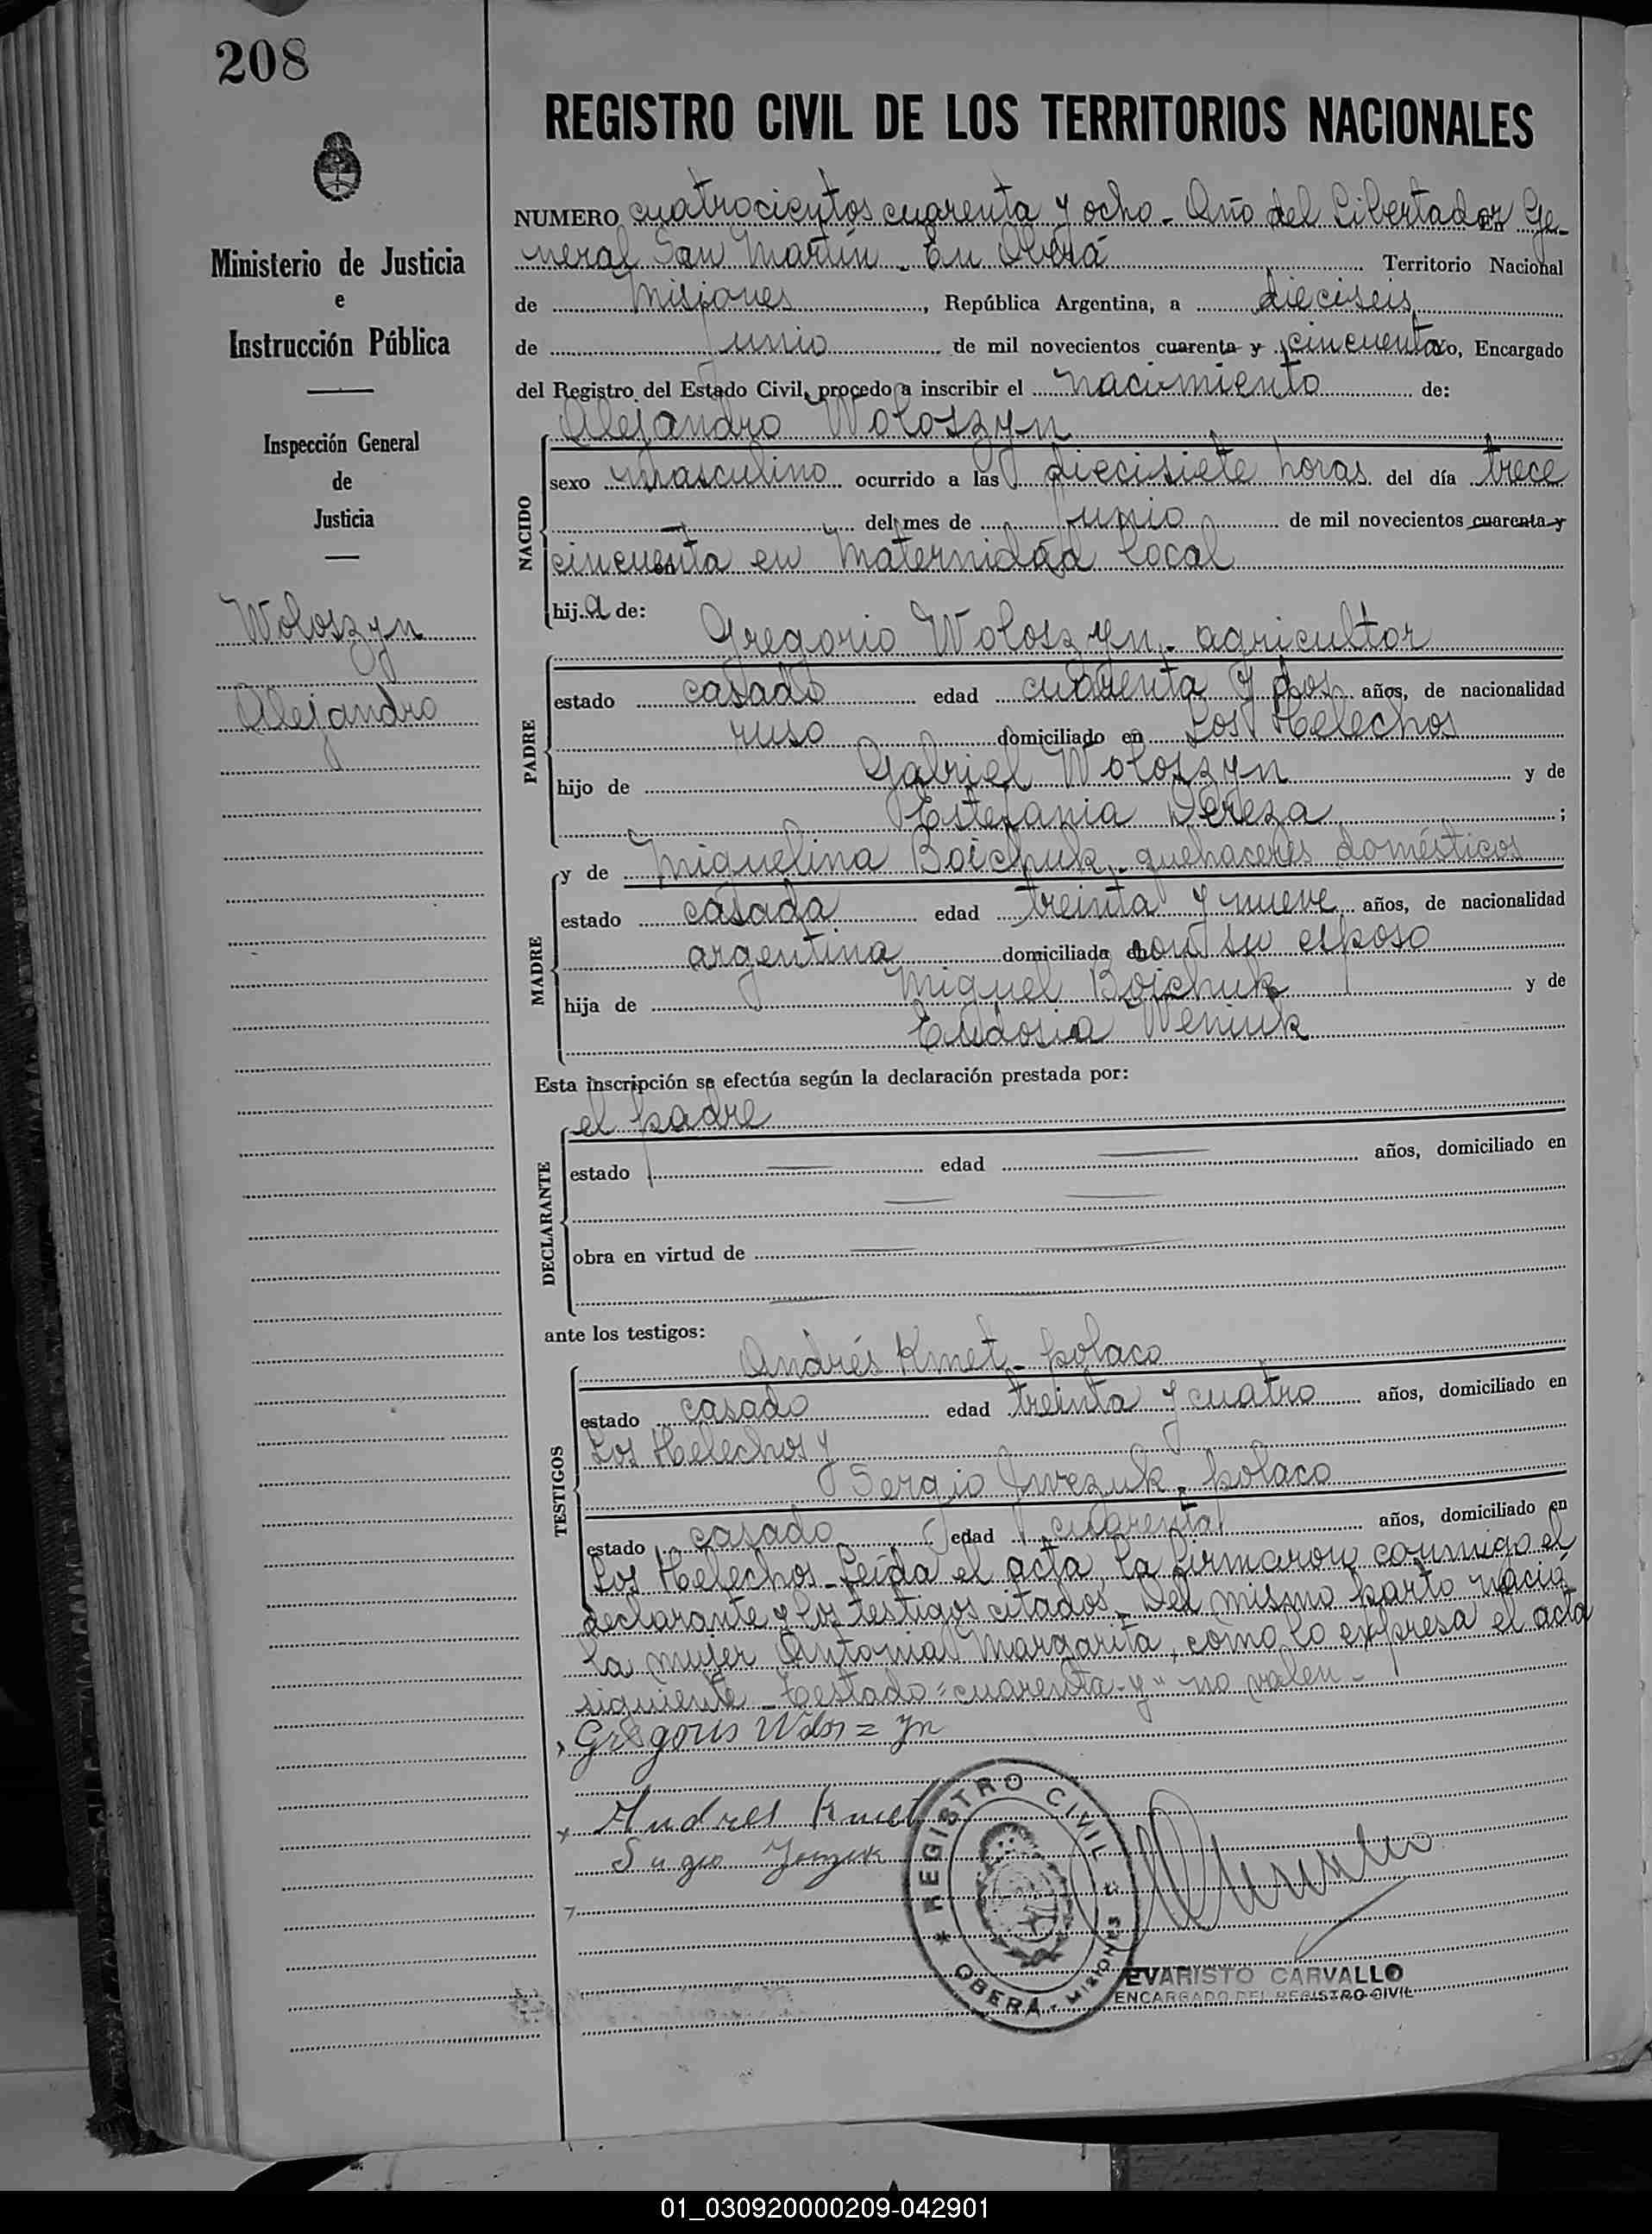 208
REGISTRO CIVIL DE LOS TERRITORIOS NACIONALES
Ministerio de Justicia
e
Instrucción Pública
Inspección General
de
Justicia
Woloszyn
Alejandro
NUMERO cuatrocientos cuarenta y ocho - Año del Libertador En Ge-
neral San Martín - En Oberá Territorio Nacional
de Misiones, República Argentina, a dieciseis
de junio de mil novecientos cuarenta y cincuenta yo, Encargado
del Registro del Estado Civil, procedo a inscribir el nacimiento de:
Alejandro Woloszyn
NACIDO
sexo masculino ocurrido a las diecisiete horas del día trece
del mes de junio de mil novecientos cuarenta y
cincuenta en Maternidad local
hij a de:
Gregorio Woloszyn - agricultor
PADRE
estado casado edad cuarenta y dos años, de nacionalidad
ruso domiciliado en Los Helechos
hijo de Gabriel Woloszyn y de
Estefania Dereza ;
y de Miguelina Boichuk - quehaceres domésticos
MADRE
estado casada edad treinta y nueve años, de nacionalidad
argentina domiciliada con su esposo
hija de Miguel Boichuk y de
Eudosia Weniuk
Esta inscripción se efectúa según la declaración prestada por:
el padre
DECLARANTE
estado — edad — años, domiciliado en
obra en virtud de —
ante los testigos:
TESTIGOS
Andrés Kmet - polaco
estado casado edad treinta y cuatro años, domiciliado en
Los Helechos y
Sergio polaco
estado casado edad cuarenta años, domiciliado en
Los Helechos - Leída el acta, la firmaron conmigo el
declarante y los testigos citados - Del mismo parto nació
la mujer Antonia Margarita, como lo expresa el acta
siguiente - Testado: "cuarenta - y" no valen -
Gregorio
Andres Kmet
REGISTRO CIVIL
* OBERÁ - MISIONES
EVARISTO CARVALLO
ENCARGADO DEL REGISTRO CIVIL
01_030920000209-042901